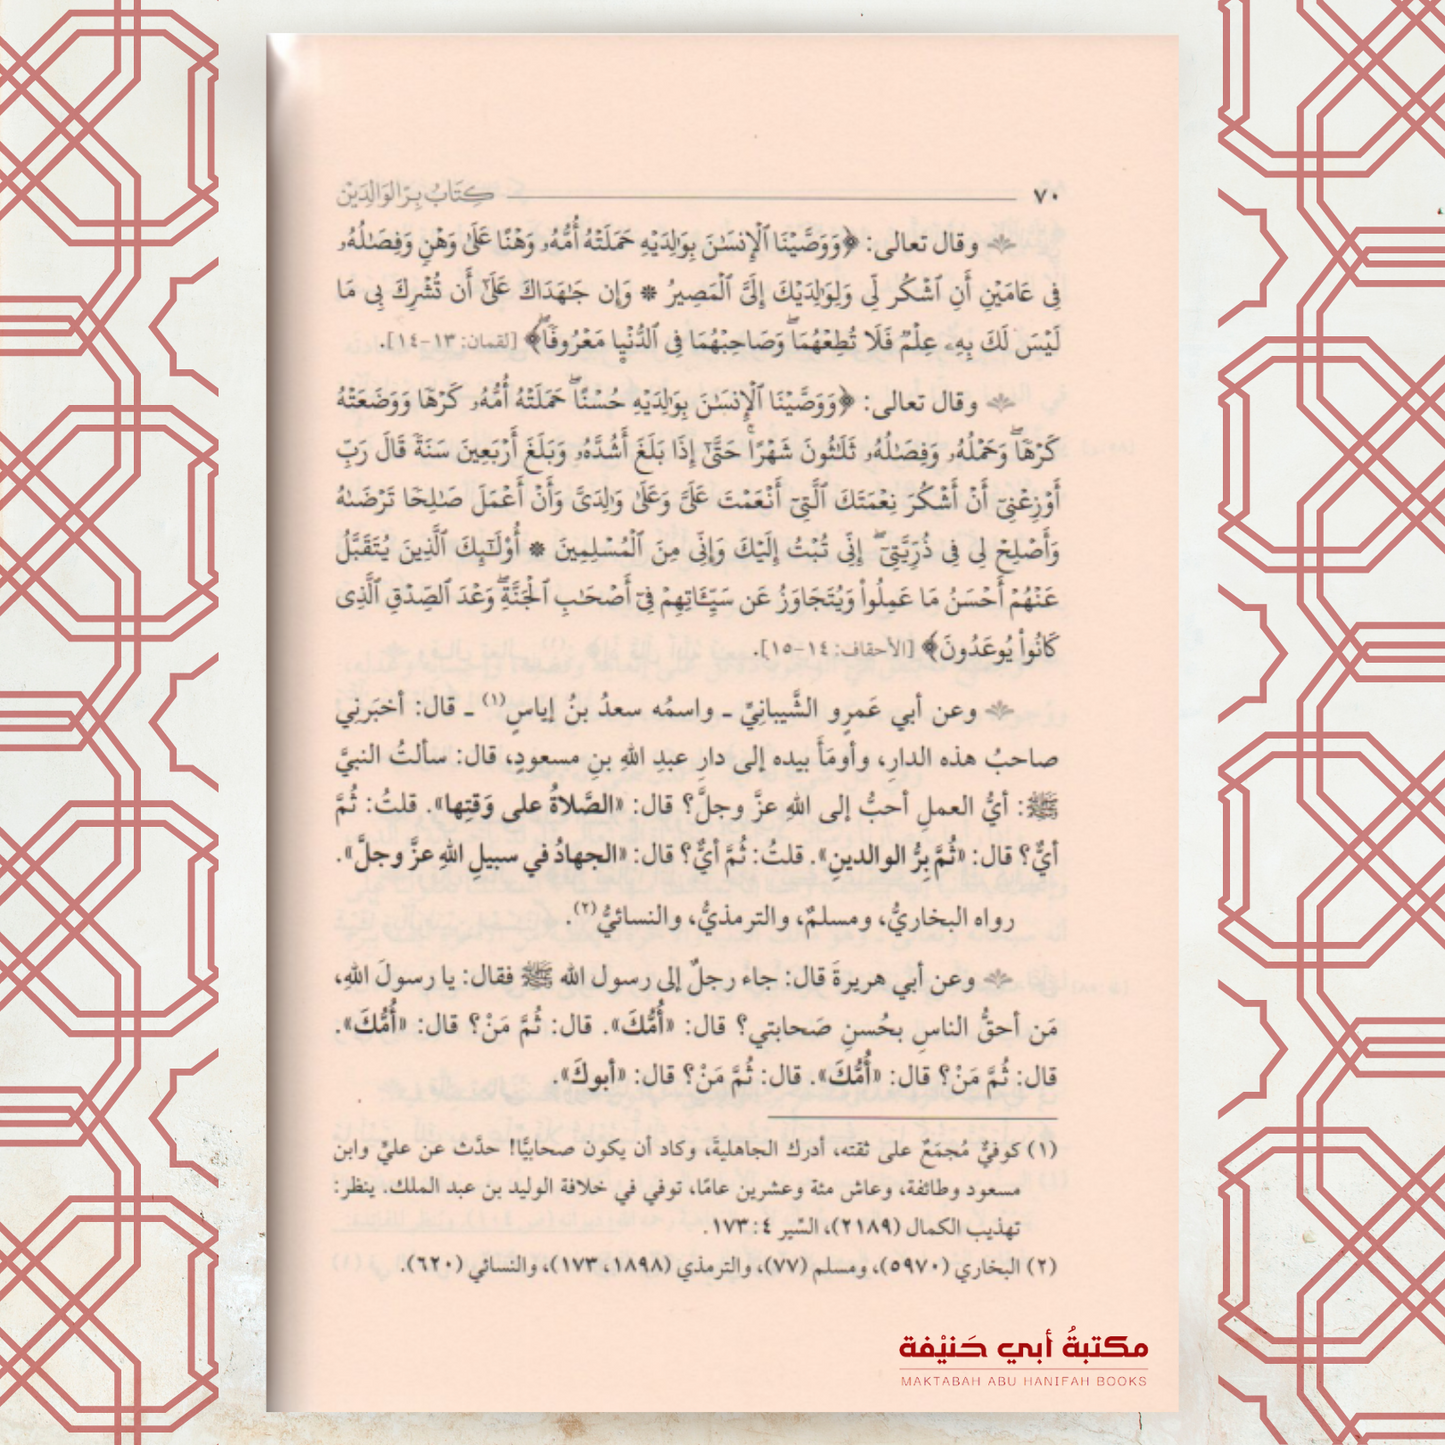 ٧٠ كِتَابُ بِرّ الوَالِدَيْن
وقال تعالى: ﴿وَوَصَّيْنَا ٱلْإِنسَٰنَ بِوَٰلِدَيْهِ حَمَلَتْهُ أُمُّهُۥ وَهْنًا عَلَىٰ وَهْنٍ وَفِصَٰلُهُۥ
فِى عَامَيْنِ أَنِ ٱشْكُر لِى وَلِوَٰلِدَيْكَ إِلَىَّ ٱلْمَصِيرُ * وَإِن جَٰهَدَاكَ عَلَىٰٓ أَن تُشْرِكَ بِى مَا
لَيْسَ لَكَ بِهِۦ عِلْمٌ فَلَا تُطِعْهُمَا ۖ وَصَاحِبْهُمَا فِى ٱلدُّنْيَا مَعْرُوفًا ۖ﴾ [لقمان: ١٣-١٤].
وقال تعالى: ﴿وَوَصَّيْنَا ٱلْإِنسَٰنَ بِوَٰلِدَيْهِ حُسْنًا ۖ حَمَلَتْهُ أُمُّهُۥ كَرْهًا وَوَضَعَتْهُ
كَرْهًا ۖ وَحَمْلُهُۥ وَفِصَٰلُهُۥ ثَلَٰثُونَ شَهْرًا ۚ حَتَّىٰٓ إِذَا بَلَغَ أَشُدَّهُۥ وَبَلَغَ أَرْبَعِينَ سَنَةً قَالَ رَبِّ
أَوْزِعْنِىٓ أَنْ أَشْكُرَ نِعْمَتَكَ ٱلَّتِىٓ أَنْعَمْتَ عَلَىَّ وَعَلَىٰ وَٰلِدَىَّ وَأَنْ أَعْمَلَ صَٰلِحًا تَرْضَىٰهُ
وَأَصْلِحْ لِى فِى ذُرِّيَّتِىٓ ۖ إِنِّى تُبْتُ إِلَيْكَ وَإِنِّى مِنَ ٱلْمُسْلِمِينَ * أُو۟لَٰٓئِكَ ٱلَّذِينَ يُتَقَبَّلُ
عَنْهُمْ أَحْسَنُ مَا عَمِلُوا۟ وَيُتَجَاوَزُ عَن سَيِّـَٔاتِهِمْ فِىٓ أَصْحَٰبِ ٱلْجَنَّةِ ۖ وَعْدَ ٱلصِّدْقِ ٱلَّذِى
كَانُوا۟ يُوعَدُونَ﴾ [الأحقاف: ١٤-١٥].
وعن أبي عَمرٍو الشَّيبانِيِّ ـ واسمُه سعدُ بنُ إياسٍ(١) ـ قال: أخبَرني
صاحبُ هذه الدارِ، وأومَأَ بيده إلى دارِ عبدِ اللهِ بنِ مسعودٍ، قال: سألتُ النبيَّ
ﷺ: أيُّ العملِ أحبُّ إلى اللهِ عزَّ وجلَّ؟ قال: «الصَّلاةُ على وَقتِها». قلتُ: ثُمَّ
أيٌّ؟ قال: «ثُمَّ بِرُّ الوالدينِ». قلتُ: ثُمَّ أيٌّ؟ قال: «الجهادُ في سبيلِ اللهِ عزَّ وجلَّ».
رواه البخاريُّ، ومسلمٌ، والترمذيُّ، والنسائيُّ(٢).
وعن أبي هريرةَ قال: جاء رجلٌ إلى رسول الله ﷺ فقال: يا رسولَ اللهِ،
مَن أحقُّ الناسِ بحُسنِ صَحابتي؟ قال: «أُمُّكَ». قال: ثُمَّ مَنْ؟ قال: «أُمُّكَ».
قال: ثُمَّ مَنْ؟ قال: «أُمُّكَ». قال: ثُمَّ مَنْ؟ قال: «أبوكَ».
(١) كوفيٌّ مُجمَعٌ على ثقته، أدرك الجاهلية، وكاد أن يكون صحابيًّا! حدَّث عن عليٍّ وابن
مسعود وطائفة، وعاش مئة وعشرين عامًا، توفي في خلافة الوليد بن عبد الملك. ينظر:
تهذيب الكمال (٢١٨٩)، السِّير ٤: ١٧٣.
(٢) البخاري (٥٩٧٠)، ومسلم (٧٧)، والترمذي (١٧٣، ١٨٩٨)، والنسائي (٦٢٠).
مكتبةُ أبي حَنيْفة
MAKTABAH ABU HANIFAH BOOKS